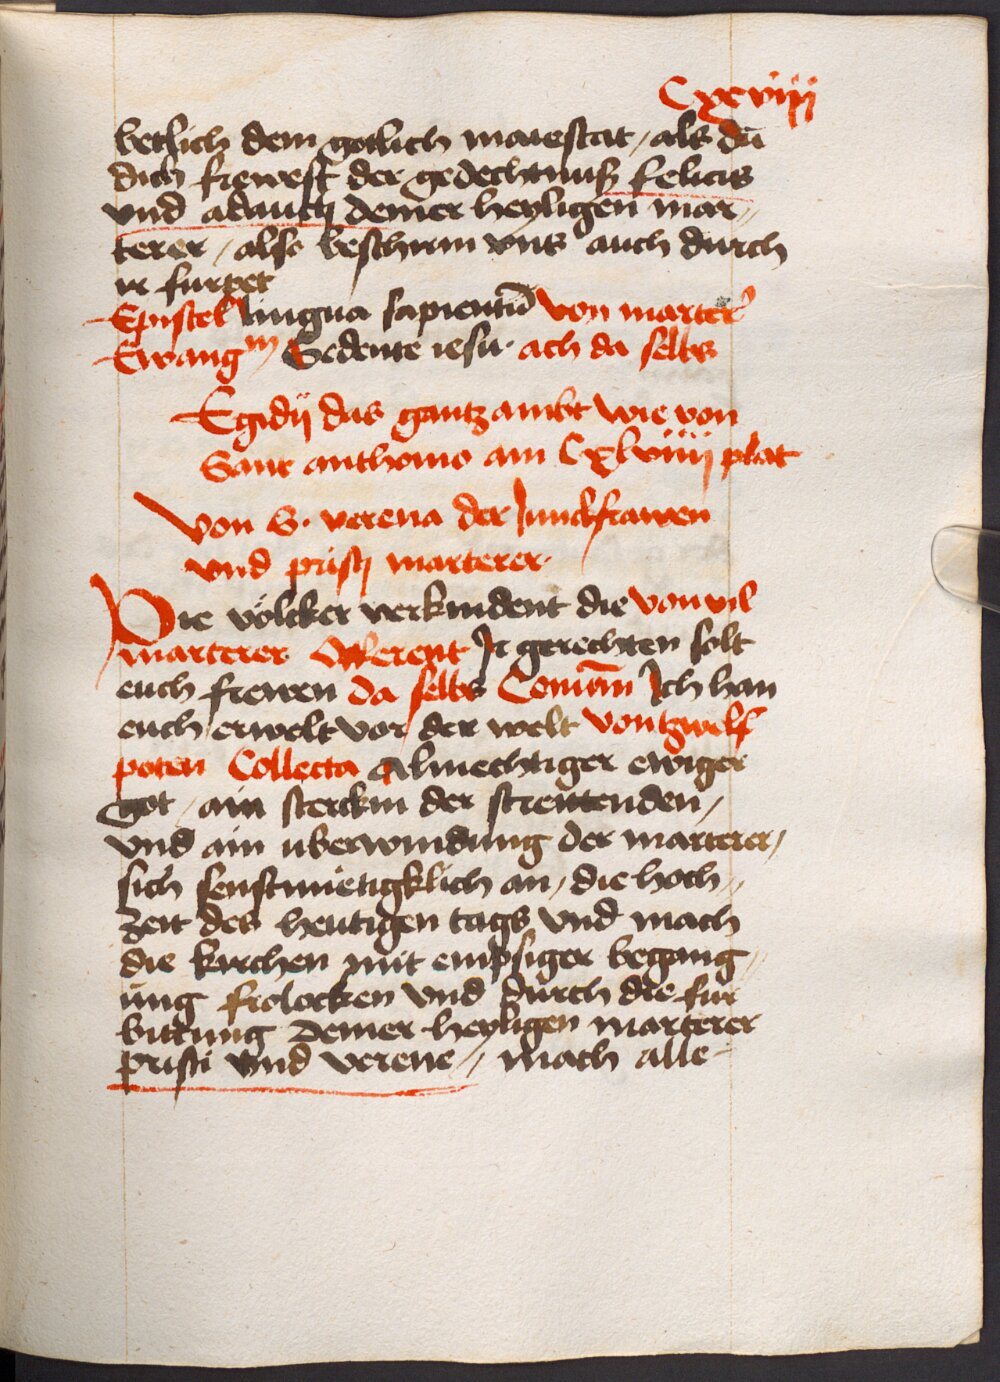 Cxxviiij
betlich dem gotlich maiestat / als du
dich frewest der gedechtnuß felicis
vnd adaucti deiner heyligen mar„
terer / also beschirm vns auch durch
ir furpet
Epistel lingua sapientū von marter̄
Ewangm Sedente iesu · ach da selbs
Egidij das gantz ambt wie von
Sant anthonio am Cxlviiij plat
Von S. verena der Junckfrawen
vnd pristi marterer·
Die völcker verkindent die von vil
marterer Offerent Ir gerechten solt
euch frewen da selbs Comūm Ich han
euch erwelt vor der welt von tzwelf
poten Collecta Almechtiger ewiger
got / ain sterckin der streittenden /
vnd ain uberwindung der marterer /
sich senftmietigklich an / die hoch„
zeit des heutigen tags vnd mach
die kirchen mit empsiger begang„
ung frolocken vnd durch die fur
bittung Deiner heyligen marterer
pristi vnd verene // mach alle